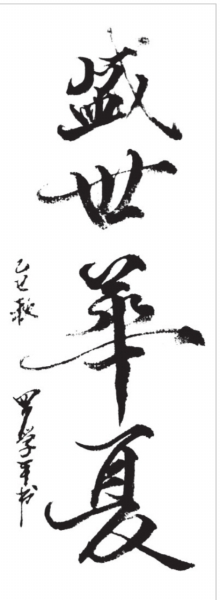 盛世華夏
乙巳秋
罗学军书